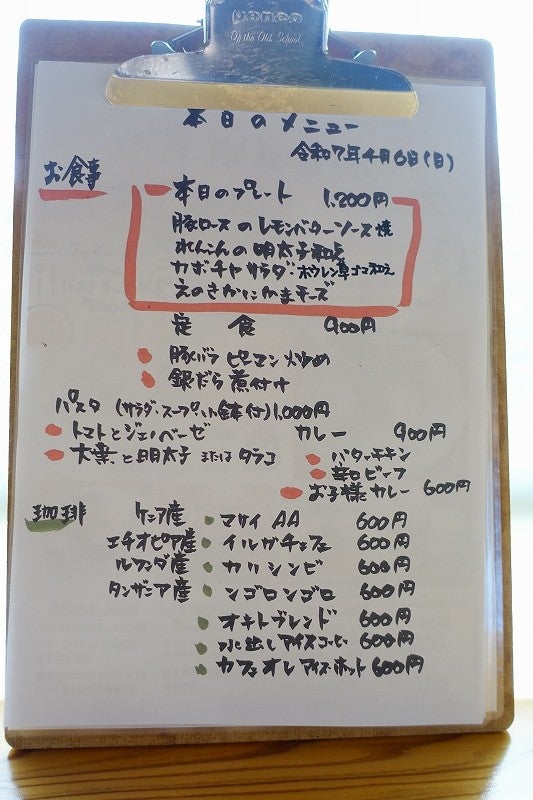 penco
Of the Old School
本日のメニュー
令和7年4月6日(日)
お食事
本日のプレート 1,200円
豚ロースのレモンバターソース焼
れんこんの明太子和え
カボチャサラダ・ホウレン草ゴマ和え
えのきかにかまチーズ
定食 900円
豚バラピーマン炒め
銀だら煮付け
パスタ (サラダ・スープ 付) 1,000円
トマトとジェノベーゼ
大葉と明太子 または タラコ
カレー 900円
バターチキン
辛口ビーフ
お子様カレー 600円
珈琲
ケニア産 マサイAA 600円
エチオピア産 イルガチェフェ 600円
ルワンダ産 カリシンビ 600円
タンザニア産 ンゴロンゴロ 600円
オキトブレンド 600円
水出しアイスコーヒー 600円
カフェオレアイス・ホット 600円